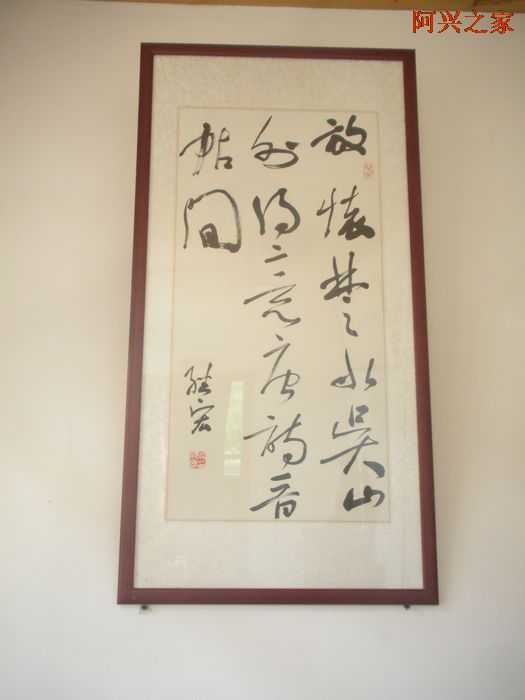 阿兴之家
放怀楚水吴山
外得意唐诗晋
帖间
继宏